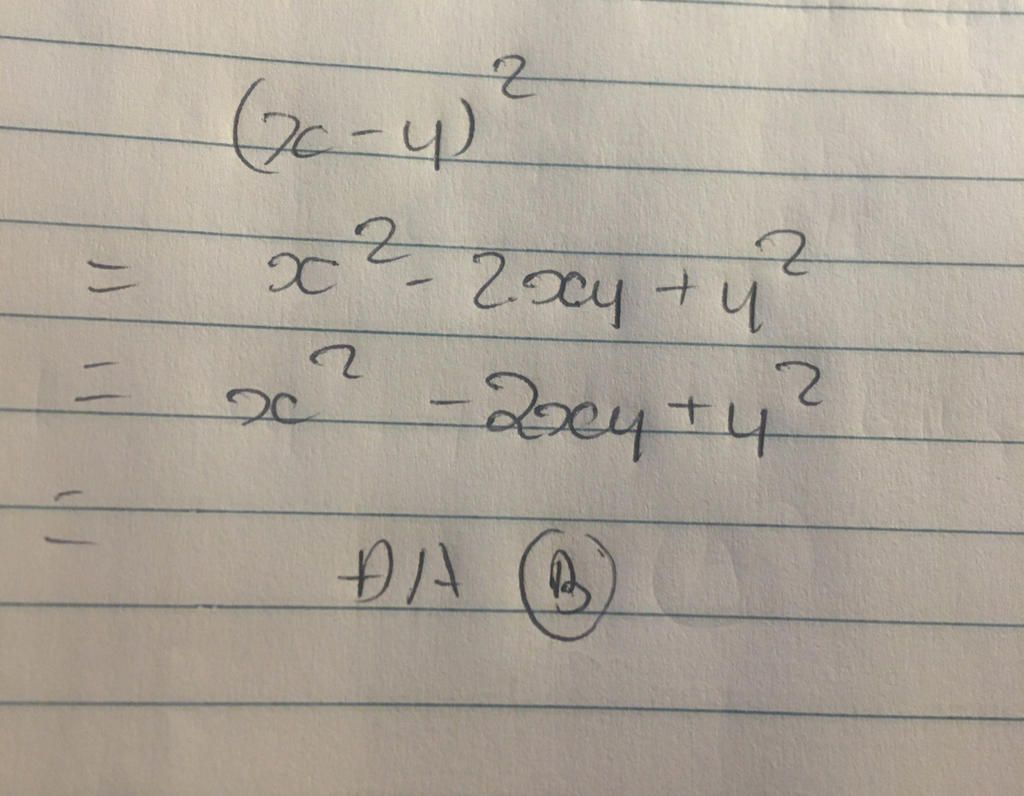 (x-y)²
= x² - 2xy + y²
= x² - 2xy + y²
= ĐA B